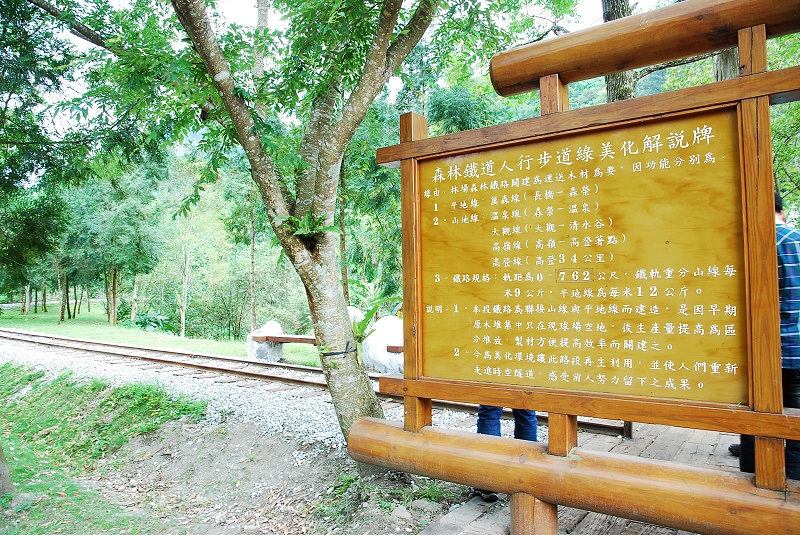 森林鐵道人行步道綠美化解說牌
緣由：林場森林鐵路關建為運送木材為要，因功能分別為，
1．平地線：萬森線（長橋－森榮）
2．山地線：溫泉線（森榮－溫泉）
大觀線（大觀－清水谷）
高嶺線（高嶺－高登著點）
高登線（高登34公里）
3．鐵路規格：軌距為0．762公尺．鐵軌重分山線每
米9公斤．平地線為每米12公斤。
說明：1．本段鐵路為聯接山線與平地線而建造，是因早期
原木堆集中只在現球場空地，後生產量提高為區
分堆放．製材方便提高效率而關建之。
2．今為美化環境讓此路段再生利用，並使人們重新
走進時空隧道．感受前人努力留下之成果。